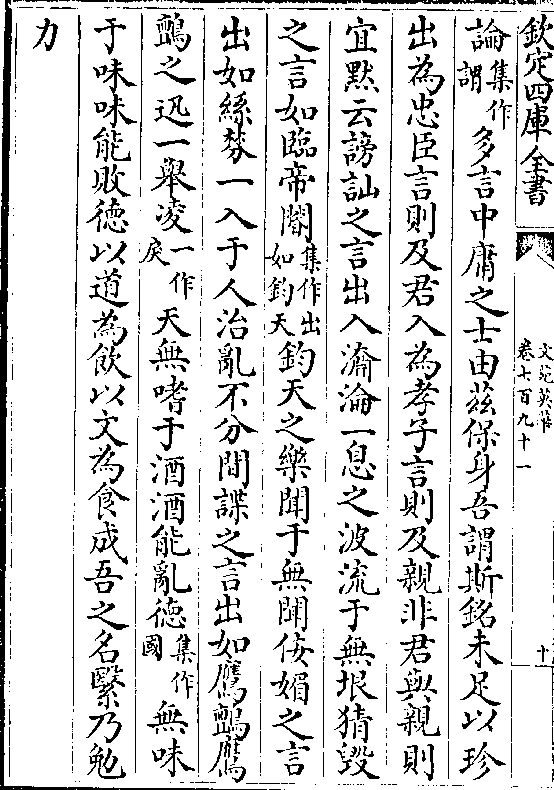 欽定四庫全書
文苑英華
卷七百九十一
十
論集作謂多言中庸之士由茲保身吾謂斯銘未足以珍
出為忠臣言則及君入為孝子言則及親非君與親則
宜默云謗訕之言出入瀹淪一息之波流于無垠猜毀
之言如臨帝閽集作出如鈞天鈞天之樂聞于無聞佞媚之言
出如絲棼一入于人治亂不分間諜之言出如鷹鸇鷹
鸇之迅一舉凌一作戾天無嗜于酒酒能亂德集作國無味
于味味能敗德以道為飲以文為食成吾之名繄乃勉
力